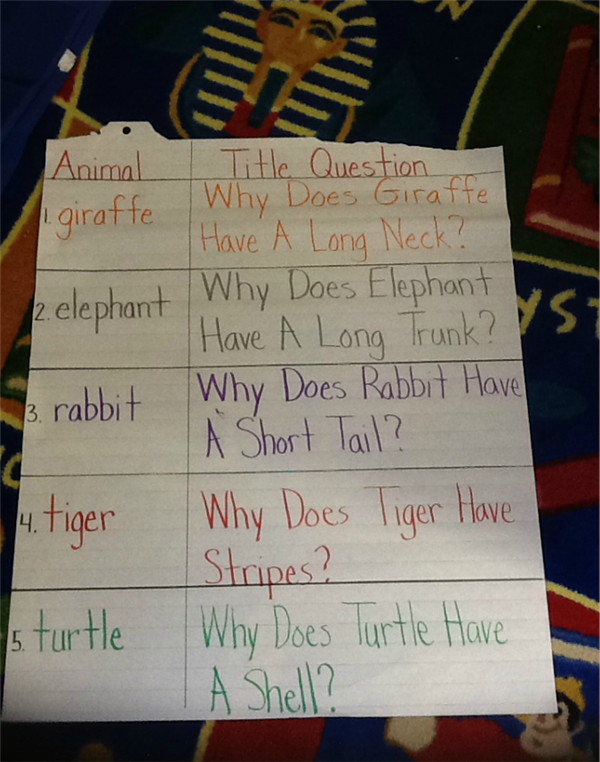 Animal Title Question
1. giraffe Why Does Giraffe
Have A Long Neck?
2. elephant Why Does Elephant
Have A Long Trunk?
3. rabbit Why Does Rabbit Have
A Short Tail?
4. tiger Why Does Tiger Have
Stripes?
5. turtle Why Does Turtle Have
A Shell?